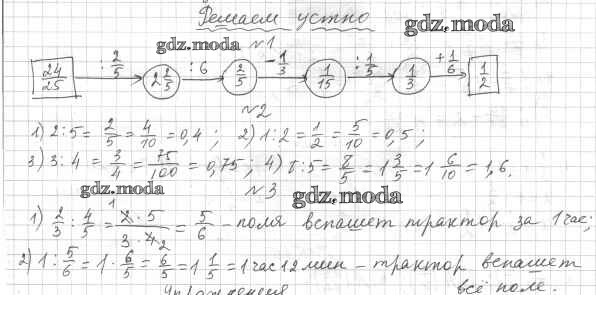 Решаем устно
gdz.moda
gdz.moda №1
24/25 : 2/5 2 2/5 : 6 2/5 - 1/3 1/15 : 1/5 1/3 + 1/6 1/2
№2
1) 2:5 = 2/5 = 4/10 = 0,4 ; 2) 1:2 = 1/2 = 5/10 = 0,5 ;
3) 3:4 = 3/4 = 75/100 = 0,75 ; 4) 8:5 = 8/5 = 1 3/5 = 1 6/10 = 1,6.
gdz.moda №3 gdz.moda
1) 2/3 : 4/5 = 1 2·5 / 3·4 2 = 5/6 – поля вспашет трактор за 1 час;
2) 1 : 5/6 = 1 · 6/5 = 6/5 = 1 1/5 = 1 час 12 мин – трактор вспашет
всё поле.
Упражнения